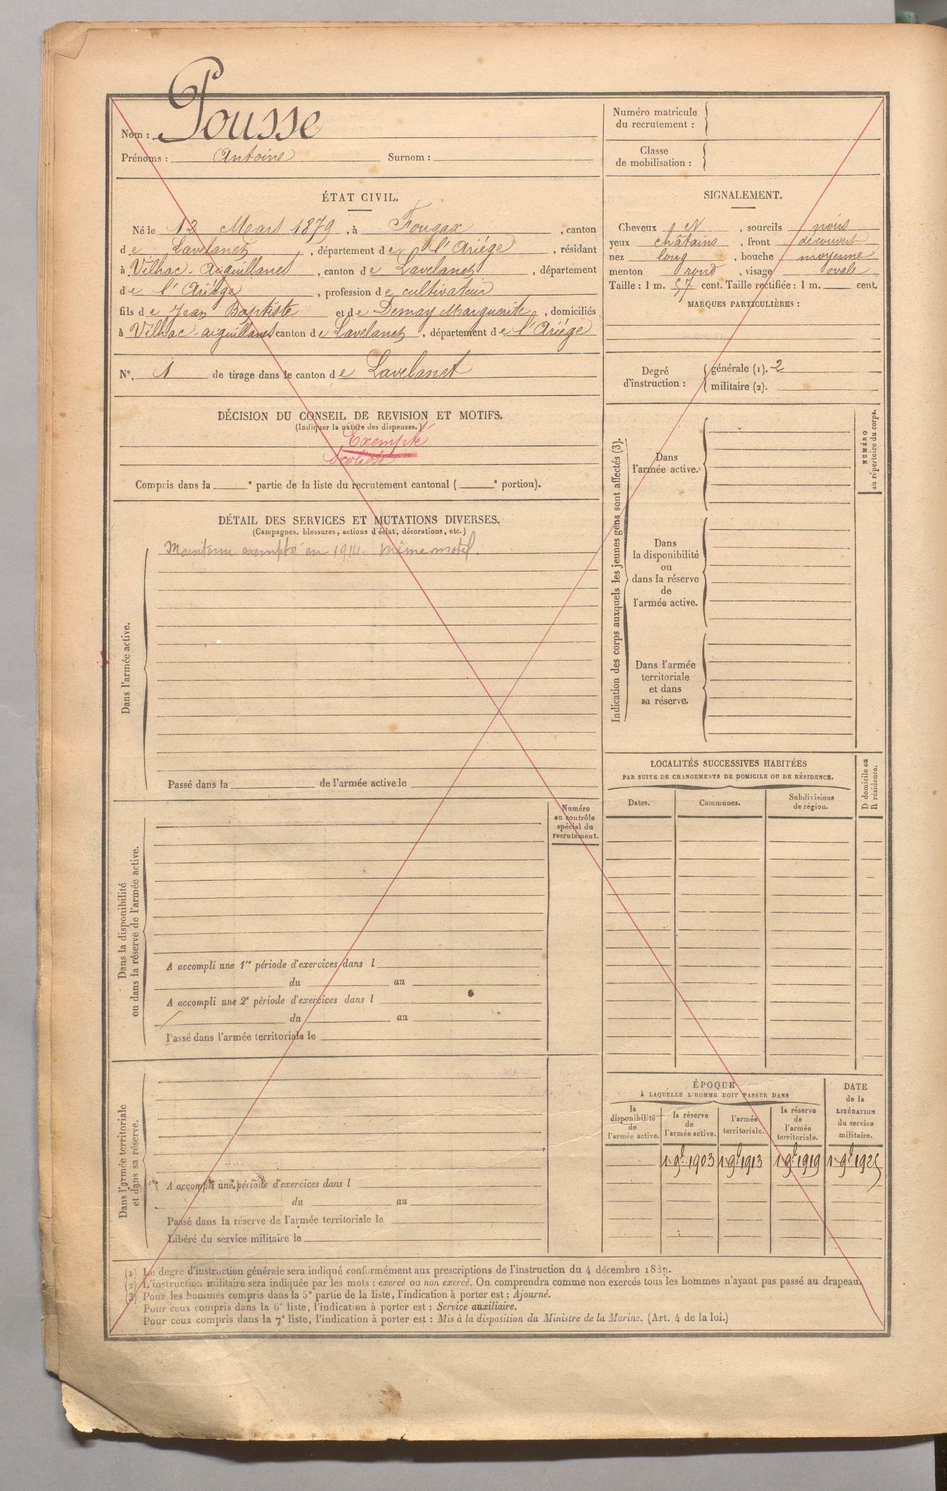 Nom : Pousse
Prénoms : Antoine Surnom :
Numéro matricule
du recrutement :
Classe
de mobilisation :
ÉTAT CIVIL.
Né le 12 Mars 1879, à Fougax, canton
de Lavelanet, département de l'Ariège, résidant
à Vilhac-Aiguillanes, canton de Lavelanet, département
de l'Ariège, profession de cultivateur
fils de Jean Baptiste et de Demay Marguerite, domiciliés
à Vilhac-aiguillanes canton de Lavelanet, département de l'Ariège
N° 1 de tirage dans le canton de Lavelanet
SIGNALEMENT.
Cheveux et N, sourcils noirs
yeux châtains, front découvert
nez long, bouche moyenne
menton rond, visage ovale
Taille : 1 m. 57 cent. Taille rectifiée : 1 m. cent.
MARQUES PARTICULIÈRES :
Degré
d'instruction :
générale (1). 2
militaire (2).
DÉCISION DU CONSEIL DE REVISION ET MOTIFS.
(Indiquer la nature des dispenses.)
Exempté
Compris dans la e partie de la liste du recrutement cantonal ( e portion).
DÉTAIL DES SERVICES ET MUTATIONS DIVERSES.
(Campagnes, blessures, actions d'éclat, décorations, etc.)
Maintenu exempté en 1914. Même motif.
Dans l'armée active.
Passé dans la de l'armée active le
Numéro
au contrôle
spécial du
recrutement.
Dans la disponibilité
ou dans la réserve de l'armée active.
A accompli une 1re période d'exercices dans l
du au
A accompli une 2e période d'exercices dans l
du au
Passé dans l'armée territoriale le
Dans l'armée territoriale
et dans sa réserve.
A accompli une période d'exercices dans l
du au
Passé dans la réserve de l'armée territoriale le
Libéré du service militaire le
Indication des corps auxquels les jeunes gens sont affectés (3).
Dans
l'armée active.
Dans
la disponibilité
ou
dans la réserve
de
l'armée active.
Dans l'armée
territoriale
et dans
sa réserve.
NUMÉRO
au répertoire du corps.
LOCALITÉS SUCCESSIVES HABITÉES
PAR SUITE DE CHANGEMENTS DE DOMICILE OU DE RÉSIDENCE.
Dates. Communes. Subdivisions
de région.
D domicile ou
R résidence.
ÉPOQUE
À LAQUELLE L'HOMME DOIT PASSER DANS
la
disponibilité
de
l'armée active.
la réserve
de
l'armée active.
l'armée
territoriale.
la réserve
de
l'armée
territoriale.
DATE
de la
LIBÉRATION
du service
militaire.
1 9bre 1903 1 9bre 1913 1 9bre 1919 1 9bre 1925
(1) Le degré d'instruction générale sera indiqué conformément aux prescriptions de l'instruction du 4 décembre 1889.
(2) L'instruction militaire sera indiquée par les mots : exercé ou non exercé. On comprendra comme non exercés tous les hommes n'ayant pas passé au drapeau.
(3) Pour les hommes compris dans la 5e partie de la liste, l'indication à porter est : Ajourné.
Pour ceux compris dans la 6e liste, l'indication à porter est : Service auxiliaire.
Pour ceux compris dans la 7e liste, l'indication à porter est : Mis à la disposition du Ministre de la Marine. (Art. 4 de la loi.)